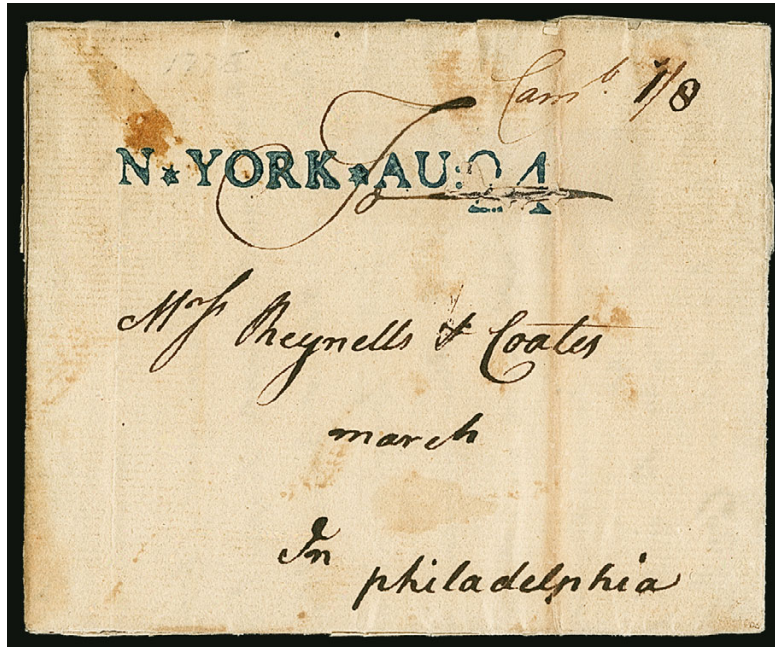 1775
Camb 1/8
To
N★YORK★AU:24
Mrss Reynells & Coates
march
In
philadelphia